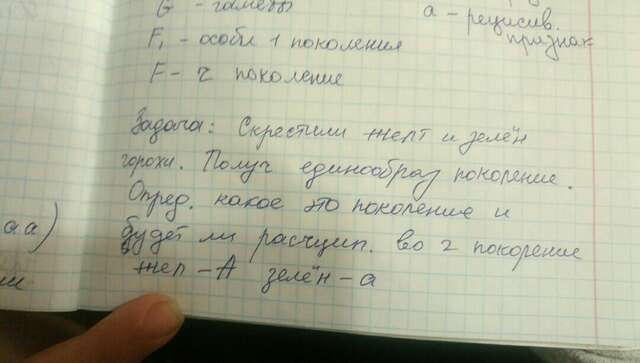 G - гаметы
а - рецисив.
признак
F₁ - особи 1 поколения
F - 2 поколение
Задача: Скрестили желт и зелён
горохи. Получ единообраз поколение.
Опред. какое это поколение и
аа)
будет ли расщип. во 2 покорение
жел - А зелён - а